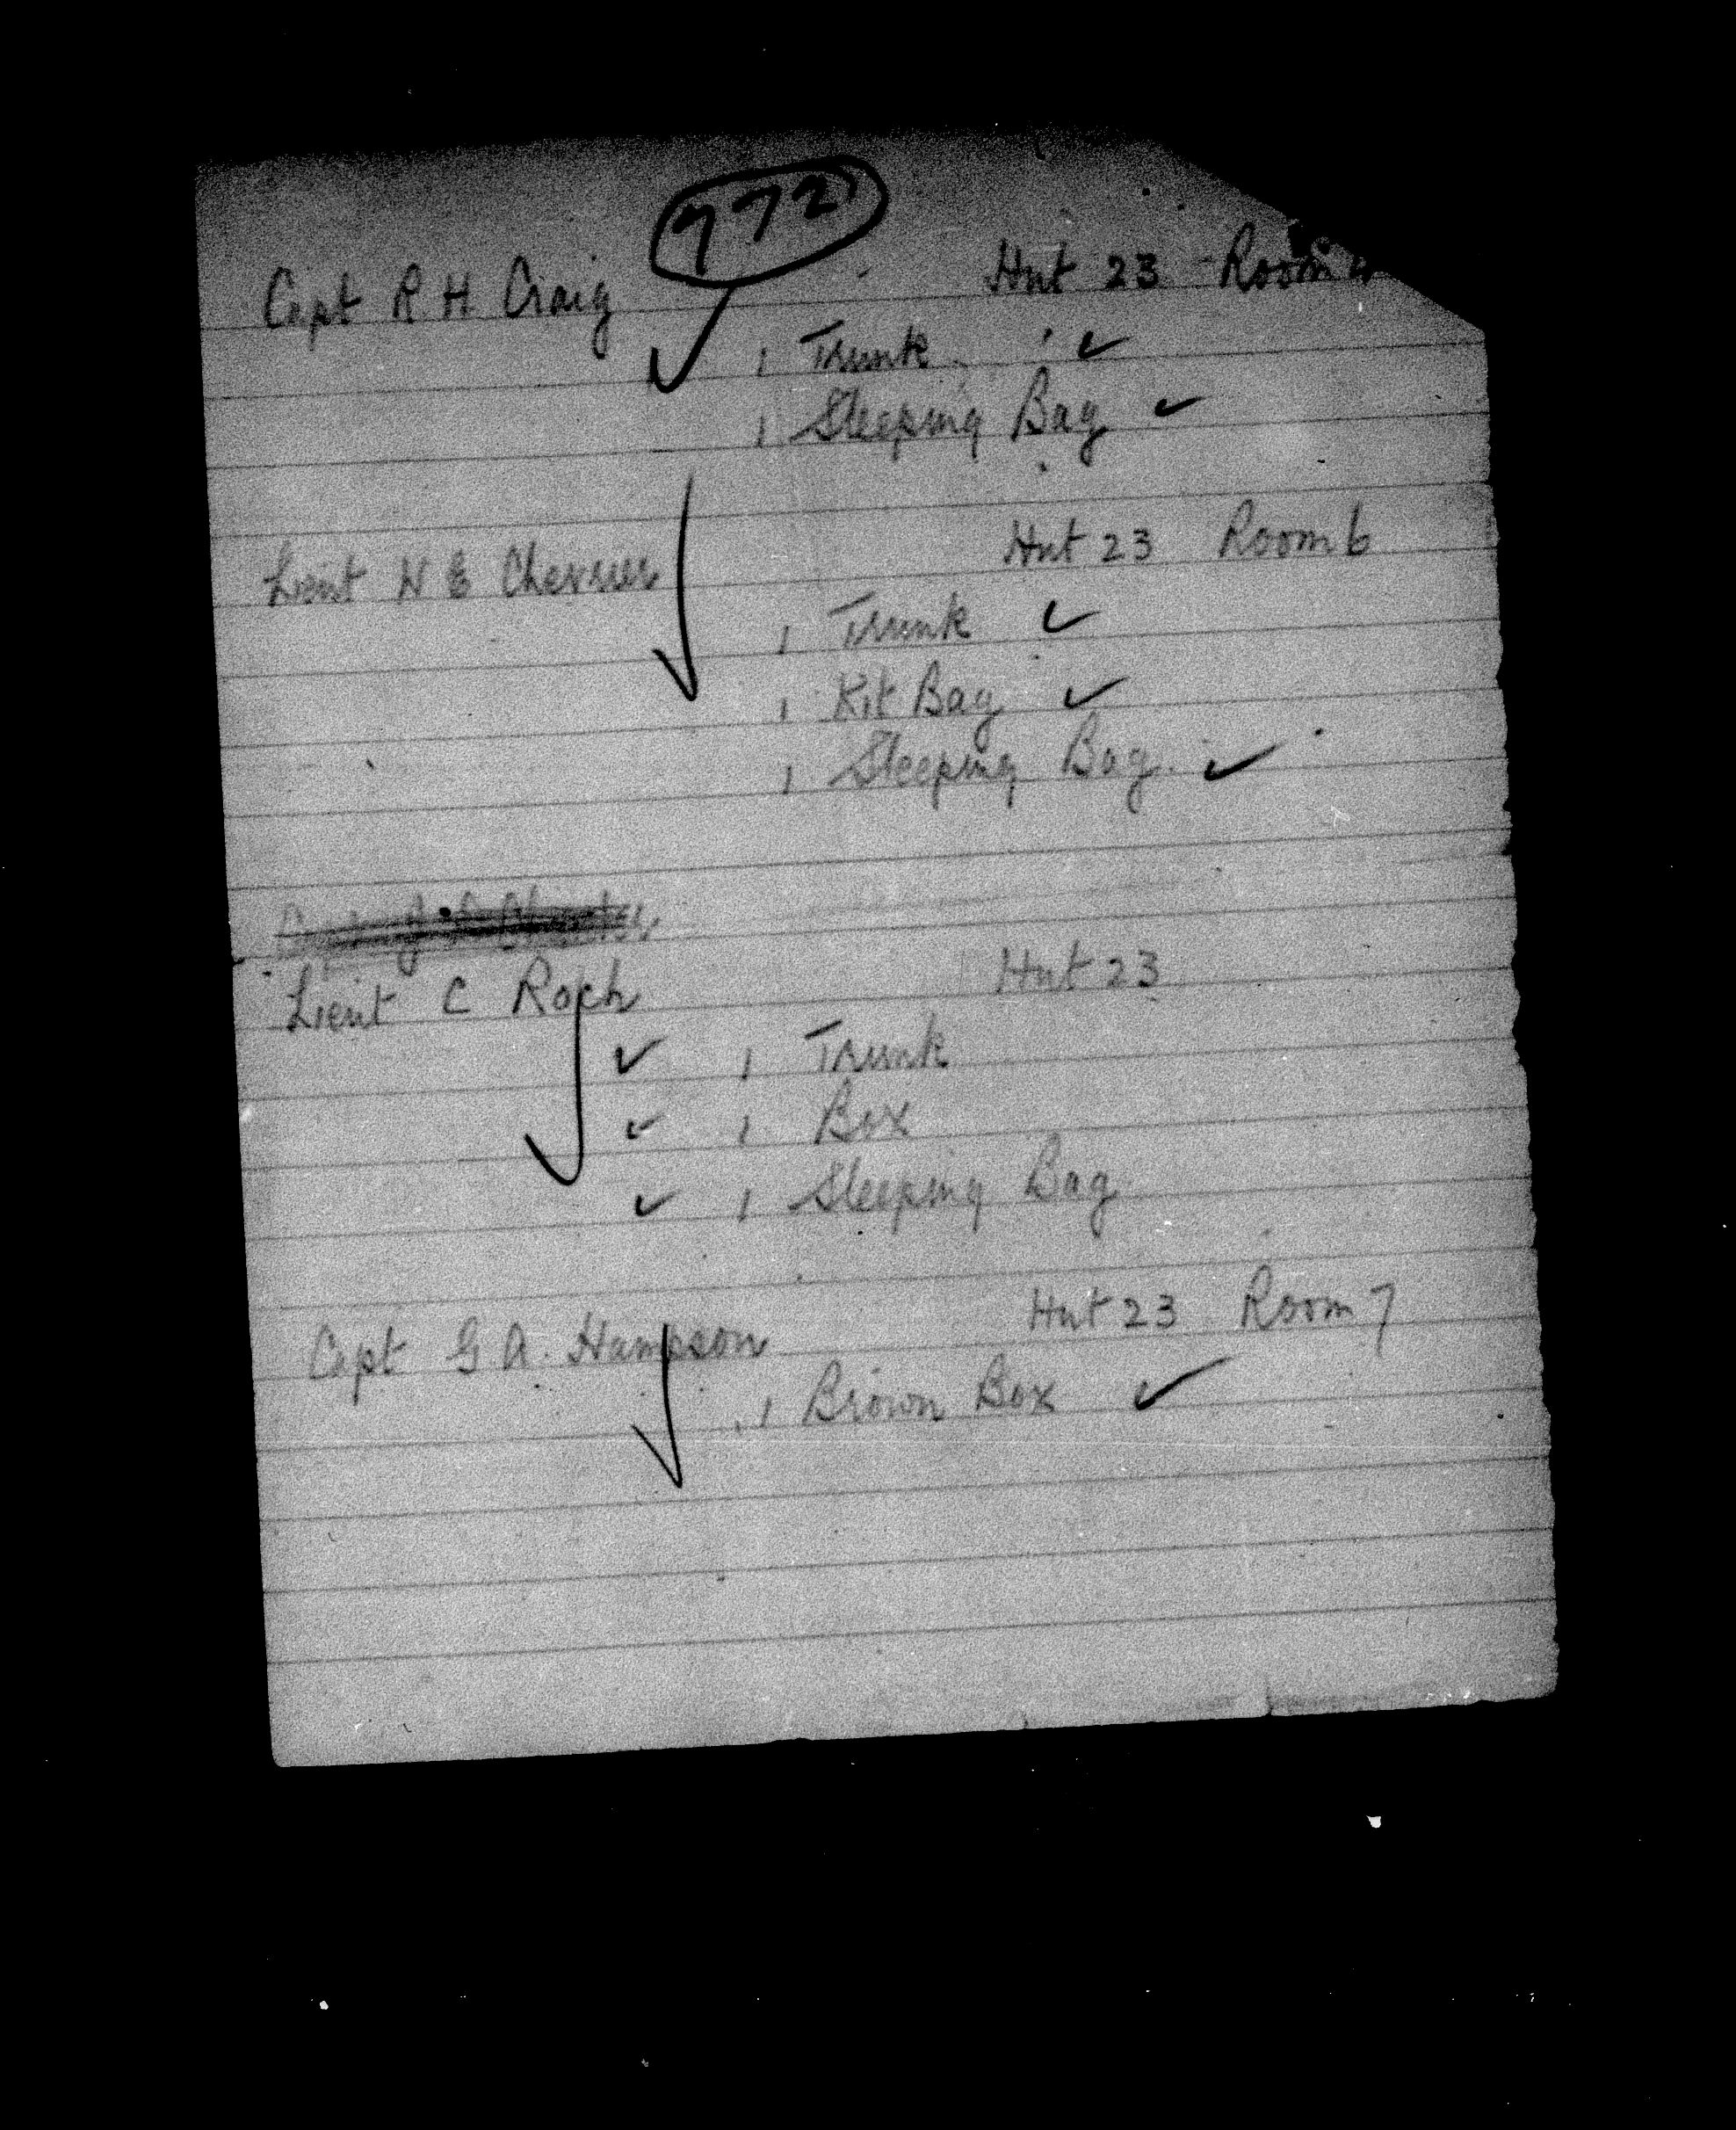 772
Capt R H Craig Hut 23 Room
1 Trunk ✓
1 Sleeping Bag ✓
Lieut N E Chevrier Hut 23 Room 6
1 Trunk ✓
1 Kit Bag ✓
1 Sleeping Bag ✓
Lieut C Roch Hut 23
✓ 1 Trunk
✓ 1 Box
✓ 1 Sleeping Bag
Capt G A. Hampson Hut 23 Room 7
1 Brown Box ✓